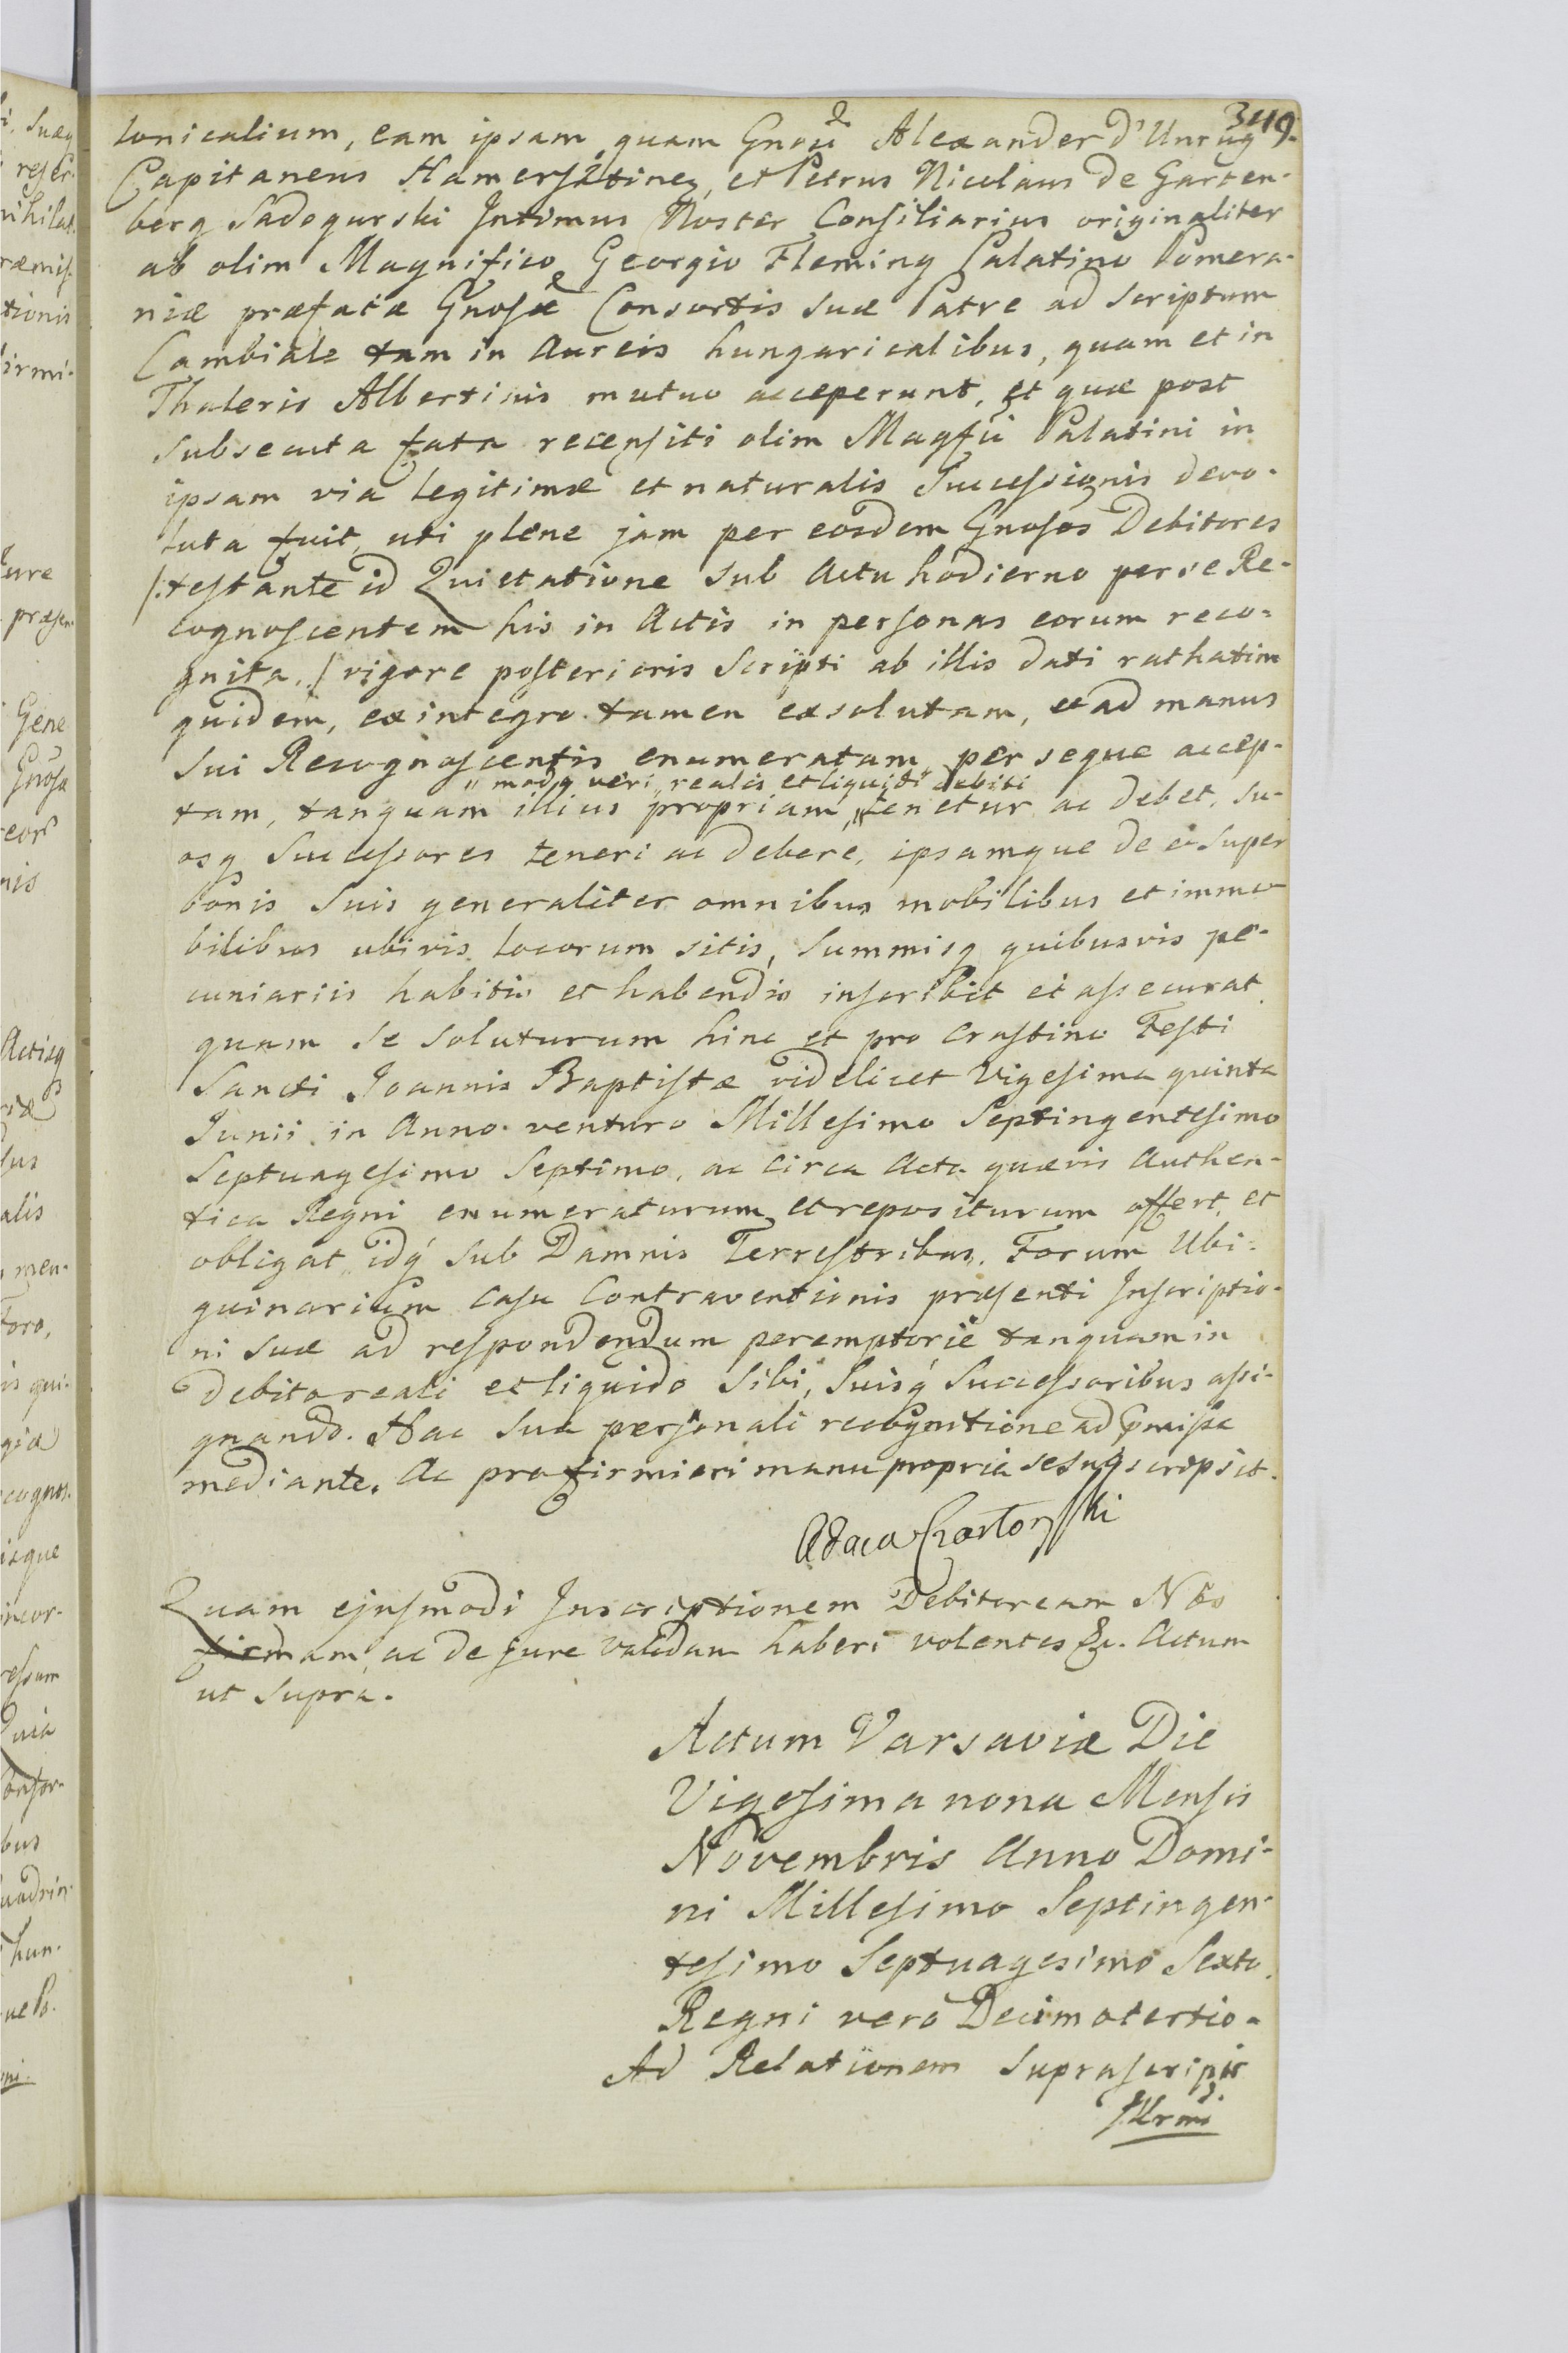 349.
lonicalium, eam ipsam quam Gnoss Alexander d'Unrug
Capitaneus Hamersztinen, et Petrus Nicolaus de Garten-
berg Sadogurski Intimus Noster Consiliarius originaliter
ab olim Magnifico Georgio Fleming Palatino Pomera-
niæ præfatæ Gnosæ Consortis suæ Patre ad scriptum
Cambiale tam in Aureis hungaricalibus, quam et in
Thaleris Albertinis mutuo acceperunt, et quæ post
subsecuta fata recensiti olim Magfci Palatini in
ipsam via legitimæ et naturalis Successionis devo-
luta fuit, uti plene jam per eosdem Gnosos Debitores
/:testante id Quietatione sub Actu hodierno per se Re-
cognoscentem his in Actis in personas eorum reco-
gnita,/ vigore posterioris Scripti ab illis dati rathatim
quidem, ex integro tamen exsolutam, et ad manus
sui Recognoscentis enumeratam, per seque accep-
"modo veri, realis et liquidi debiti
tam, tanquam illius propriam, "tenetur ac debet, su-
osq Successores teneri ac debere, ipsamque de et super
bonis suis generaliter omnibus mobilibus et immo
bilibus ubivis locorum sitis, Summisq quibusvis pe-
cuniariis habitis et habendis inscribit et assecurat
quam se soluturum hinc et pro crastino Festi
Sancti Joannis Baptistæ videlicet Vigesima quinta
Junii in Anno venturo Millesimo Septingentesimo
Septuagesimo Septimo, ac circa Acta quævis Authen-
tica Regni enumeraturum et repositurum offert, et
obligat idq sub Damnis Terrestribus. Forum Ubi-
quinarium casu Contraventionis præsenti Inscriptio-
ni suæ ad respondendum peremptorie tanquam in
Debito reali et liquido sibi, suisq Successoribus assi-
gnando. Hac sua personali recognitione ad præmissa
mediante. Ac pro firmiori manu propria se subscripsit.
Adam Czartoryski
Quam ejusmodi Inscriptionem Debitoream Nos
firmam, ac de jure validam haberi volentes &c. Actum
ut supra.
Actum Varsaviæ Die
Vigesima nona Mensis
Novembris Anno Domi-
ni Millesimo Septingen-
tesimo Septuagesimo Sexto
Regni vero Decimotertio.
Ad Relationem suprascripti